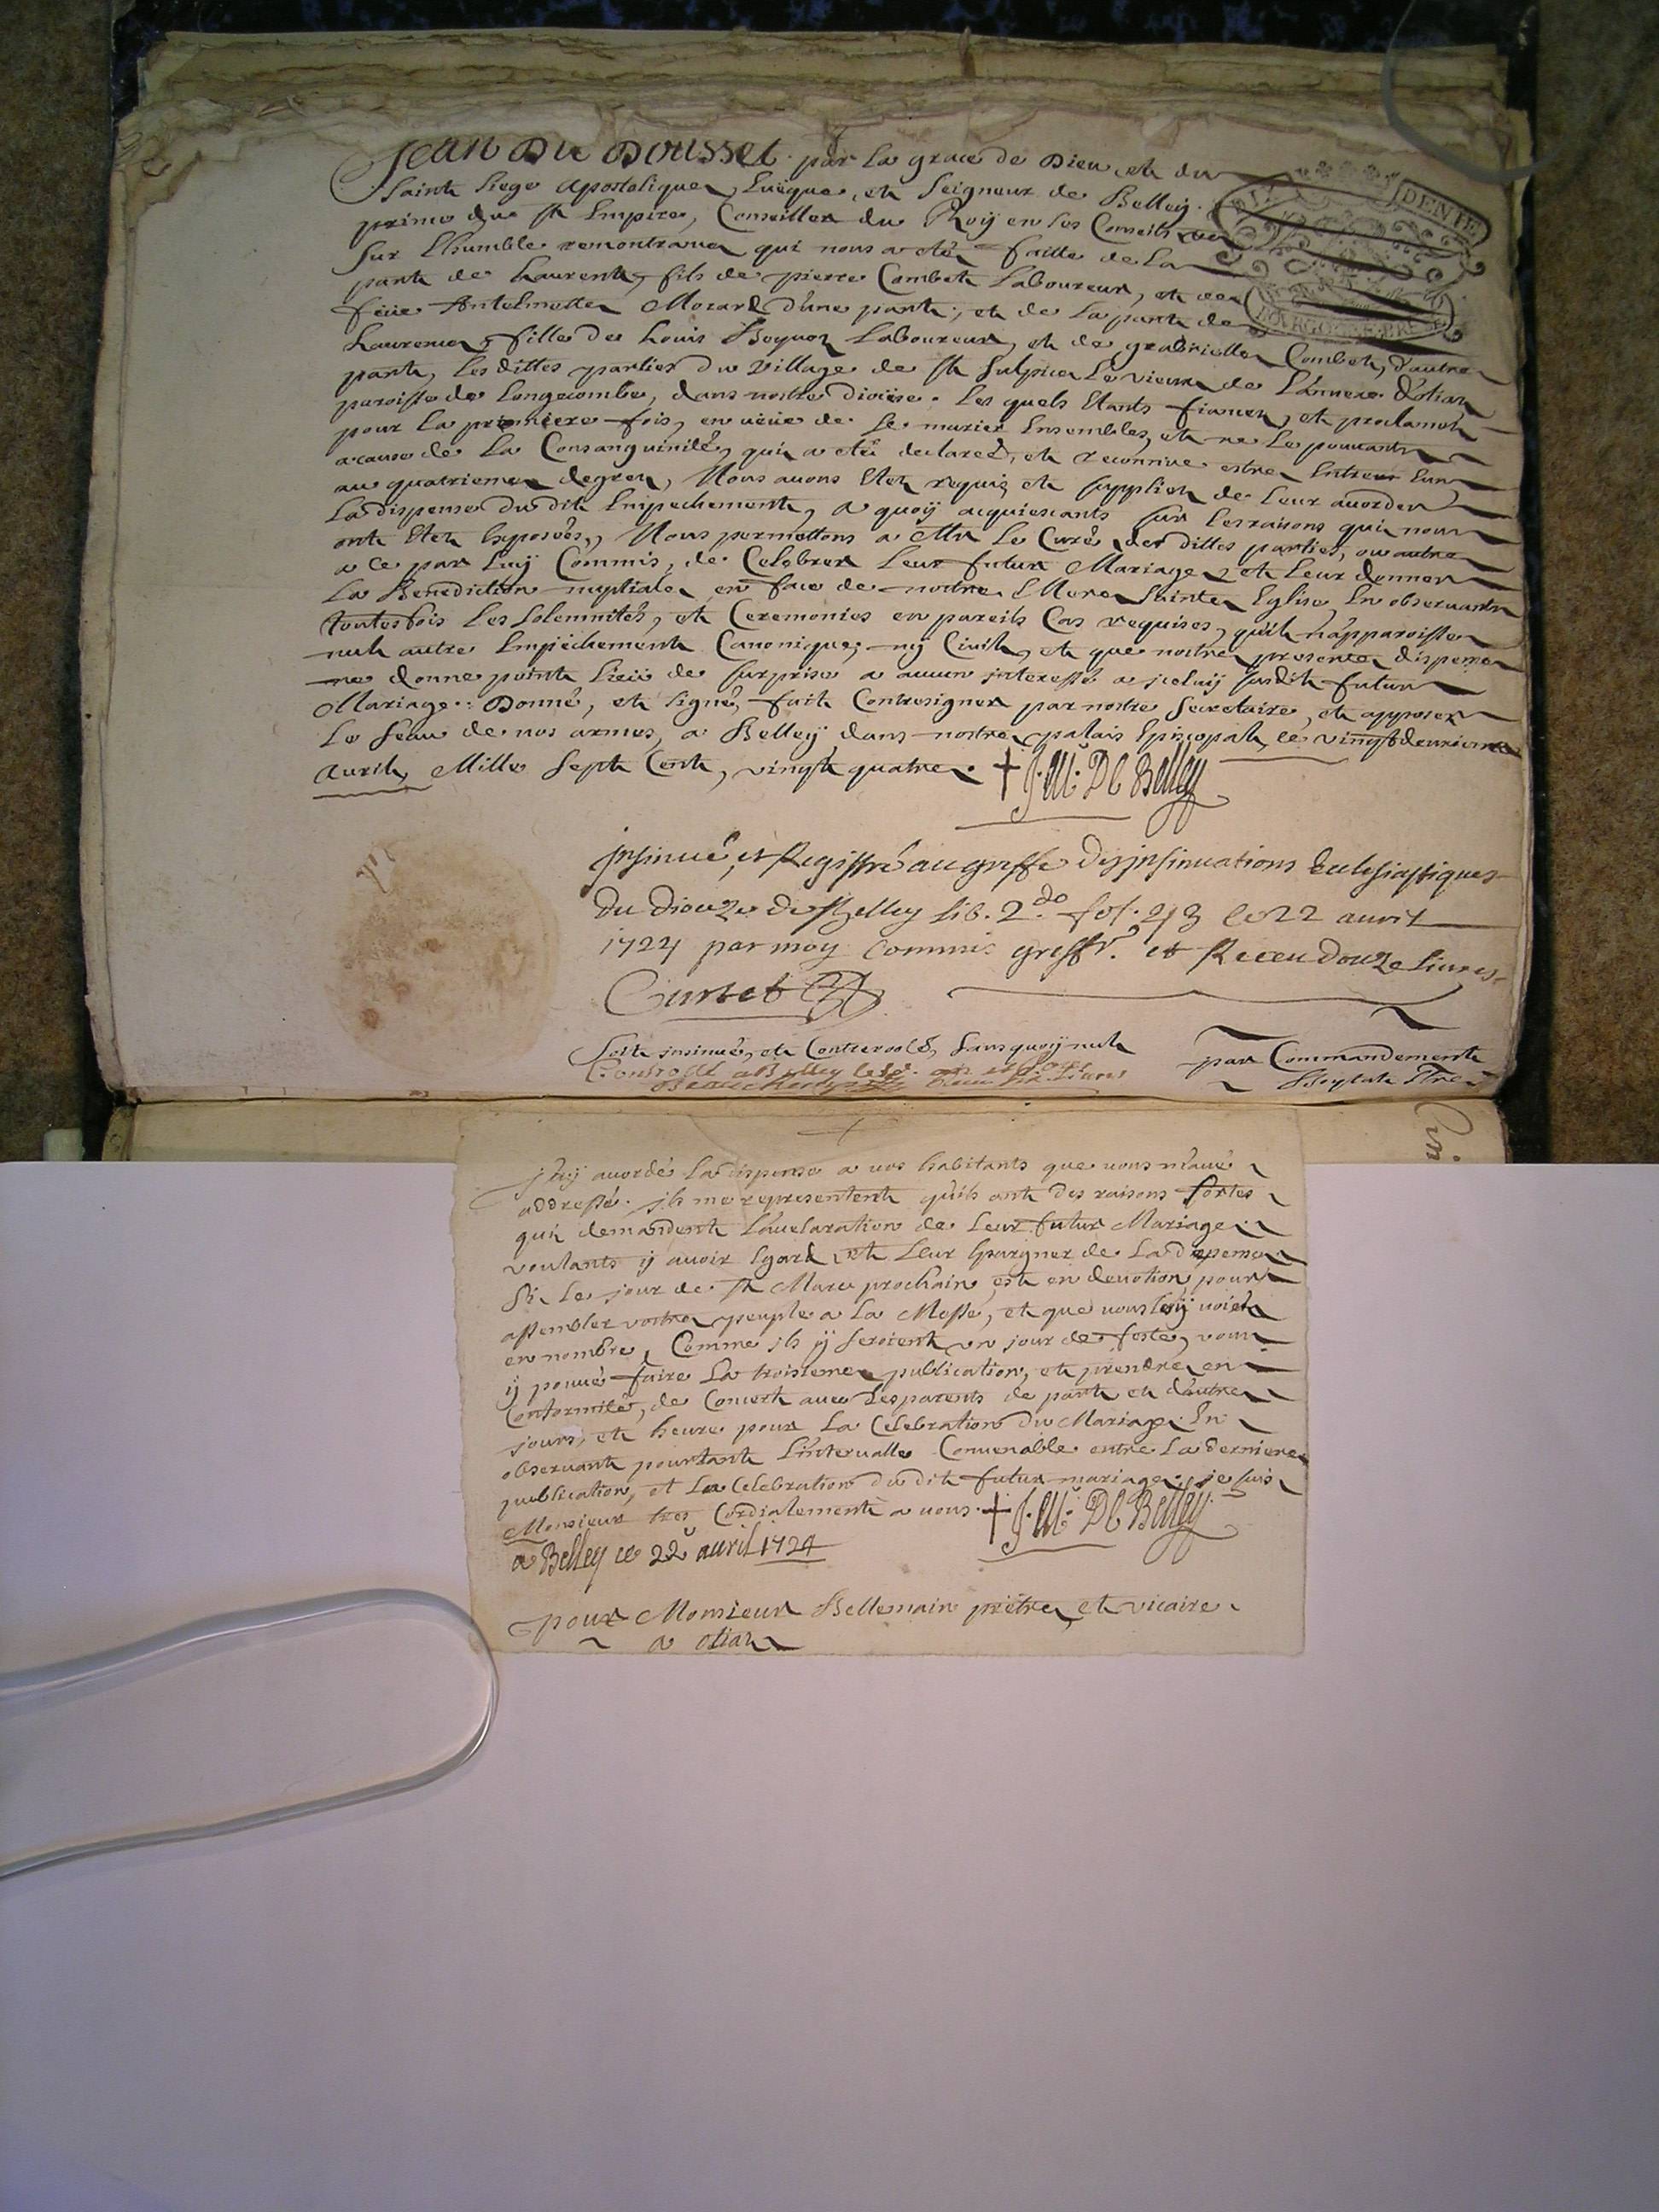 Jean Du Dousset par la grace de Dieu, et du
Saint Siege Apostolique, Evêque, et Seigneur de Belley.
prince du St Empire, Conseiller du Roy en ses Conseils
Sur l'humble remontrance qui nous a été faitte de la
part de Laurent, fils de pierre Combet Laboureur, et de
feüe Antelmette Morard d'une part, et de la part de
Laurence, fille de Louis Laboureur, et de gabrielle Combet, d'autre
part, les dittes parties du Village de St Sulpice le vieux de l'annexe d'otian
paroisse de Longecombe, dans nostre diocese. Les quels Etants fiancez, et proclamez
pour la premiere fois, en veüe de se marier Ensembles, et ne le pouvants
a cause de la Consanguinité, qui a été declarée, et reconnüe estre Entreux
au quatrieme degrez, Nous avons Etez requis et suppliez de leur accorder
la dispense du dit Empechement, a quoy acquiescants sur les raisons qui nous
ont Etez Exposées, Nous permettons a Mr le Curé des dittes parties, ou autre
a ce par luy Commis, de Celebrer leur futur Mariage, et leur donner
la Benediction nuptiale en face de nostre Mere Sainte Eglise, En observants
toutesfois les solemnités, et Ceremonies en pareils Cas requises, qu'il n'apparoisse
nul autre Empêchement Canonique, ny Civil, et que nostre presente dispense
ne donne point lieü de surprise a aucun interessé a jceluy susdit futur
Mariage. Donné, et signé, fait Contresigner par nostre Secretaire, et apposer
le seau de nos armes, a Belley dans nostre palais Episcopal, ce vingtdeuxieme
Avril, Mille Sept Cent, vingt quatre. † J. De Belley
jnsinué, et Registré au greffe des jnsinuations Eclesiastiques
du dioceze de Belley lib. 2do fol. 213 le 22 avril
1724 par moy commis greffr. et Receu douze livres
Curtet
Soit insinué, et Controolé, sans quoy nul
par Commandement
Controlé a Belley
Receu six livres
J'ay accordé la dispense a vos habitants que vous m'avé
addressé. jls me representent qu'ils ont des raisons fortes
qui demandent l'accelaration de leur futur Mariage.
voulants y avoir Egard, et leur Epargner de la depense
Si le jour de St Marc prochain, est en devotion pour
assembler vostre peuple a la Messe, et que vous l'y voiéz
en nombre, Comme jls y seroient un jour de feste, vous
y pouvé faire la troisieme publication, et prendre en
Conformité, de Concert avec les parents de part et d'autre
jours, et heure pour la Celebration du Mariage. En
observant pourtant l'intervalle Convenable entre la derniere
publication, et la Celebration du dit futur mariage. je suis
Monsieur tres Cordialement a vous. † J. De Belley
a Belley ce 22 avril 1724
pour Monsieur Bellemain prêtre, et vicaire
a otian